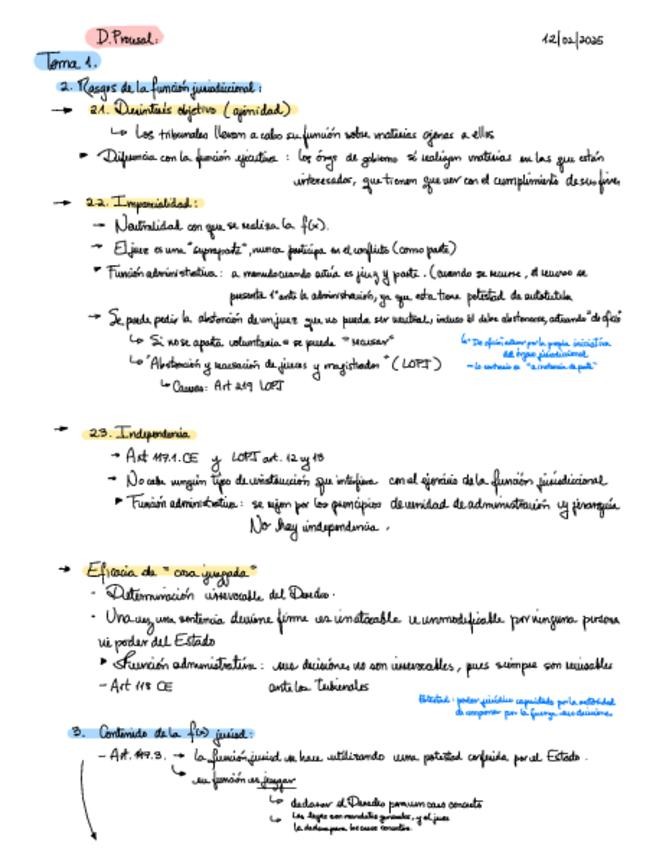 D. Procesal:
12/02/2025
Tema 1.
2. Rasgos de la función jurisdiccional:
→ 2.1. Desinterés objetivo (ajenidad)
↳ Los tribunales llevan a cabo su función sobre materias ajenas a ellos
▸ Diferencia con la función ejecutiva: los órgs de gobierno sí realizan materias en las que están
interesados, que tienen que ver con el cumplimiento de sus fines
→ 2.2. Imparcialidad:
→ Neutralidad con que se realiza la f(x).
→ El juez es una "supraparte", nunca participa en el conflicto (como parte)
▸ Función administrativa: a menudo cuando actúa es juez y parte. (cuando se recurre, el recurso se
presenta 1º ante la administración, ya que esta tiene potestad de autotutela
→ Se puede pedir la abstención de un juez que no pueda ser neutral, incluso él debe abstenerse, actuando "de oficio"
↳ Si no se aparta voluntaria se puede "recusar"
↳ De oficio: actuar por la propia iniciativa
del órgano jurisdiccional
– lo contrario es "a instancia de parte"
↳ "Abstención y recusación de jueces y magistrados" (LOPJ)
↳ Causas: Art 219 LOPJ
→ 2.3. Independencia
→ Art 117.1. CE y LOPJ art. 12 y 13
→ No cabe ningún tipo de que interfiera con el ejercicio de la función jurisdiccional
▸ Función administrativa: se rigen por los principios de unidad de administración y jerarquía
No hay independencia.
→ Eficacia de "cosa juzgada"
- Determinación irrevocable del Derecho.
- Una vez una sentencia deviene firme es inatacable e inmodificable por ninguna persona
ni poder del Estado
▸ Función administrativa: sus decisiones no son irrevocables, pues siempre son revisables
ante los Tribunales
– Art 118 CE
Potestad: poder jurídico capacitado por la autoridad
de imponer por la fuerza sus decisiones
3. Contenido de la f(x) jurisd:
– Art. 117.3. → la función jurisd se hace utilizando una potestad conferida por el Estado.
↳ su función es juzgar
↳ declarar el Derecho para un caso concreto
↳ Las leyes son mandatos generales, y el juez
la declara para los casos concretos